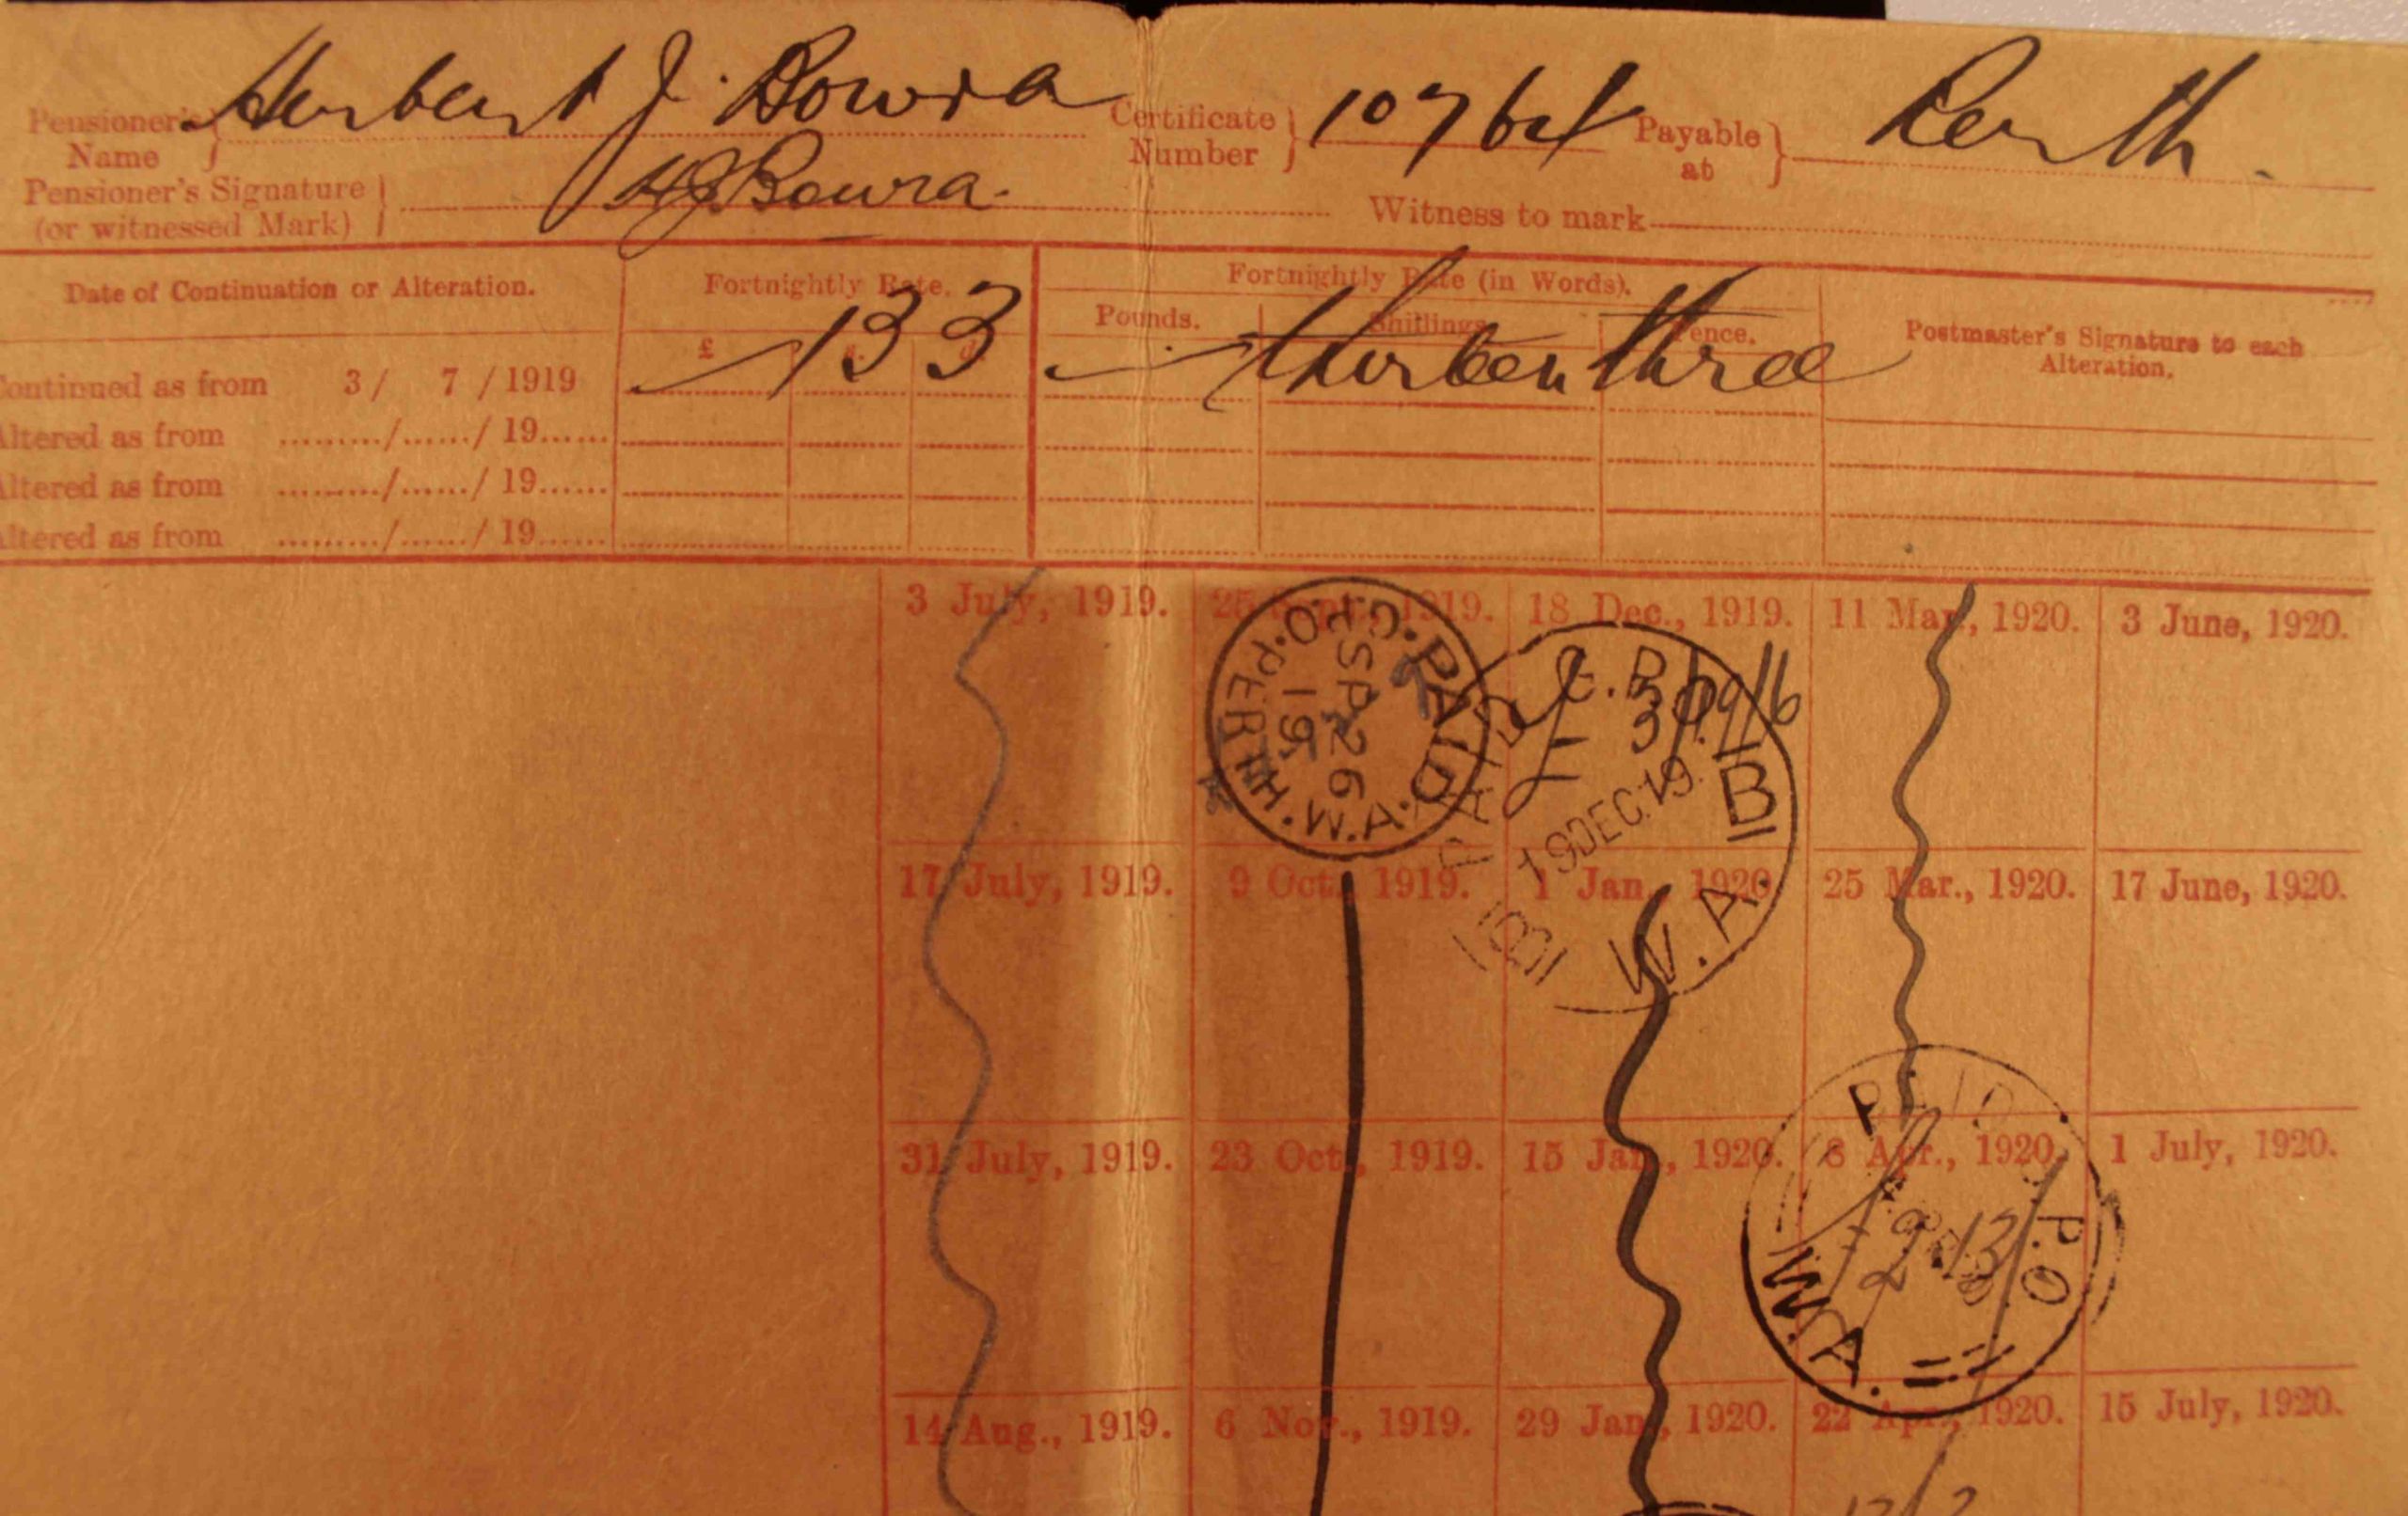 Pensioner's Name } Herbert J. Bowra Certificate Number } Payable at } Perth.
Pensioner's Signature (or witnessed Mark) } H J Bowra. Witness to mark
Date of Continuation or Alteration. Fortnightly Rate. Fortnightly Rate (in Words). Postmaster's Signature to each Alteration.
£ s. d. Pounds. Shillings. Pence.
Continued as from 3/ 7 / 1919 13 3 thirteen three
Altered as from ........./....../ 19......
Altered as from ........./....../ 19......
Altered as from ........./....../ 19......
3 July, 1919. 25 Sept., 1919. 18 Dec., 1919. 11 Mar., 1920. 3 June, 1920.
PAID G.P.O. PERTH. W.A.
SP 26
19
PAID G.P.O. B W.A. B
19 DEC. 19.
17 July, 1919. 9 Oct., 1919. 1 Jan., 1920. 25 Mar., 1920. 17 June, 1920.
31 July, 1919. 23 Oct., 1919. 15 Jan., 1920. 8 Apr., 1920. 1 July, 1920.
PAID P.O W.A.
14 Aug., 1919. 6 Nov., 1919. 29 Jan., 1920. 22 Apr., 1920. 15 July, 1920.